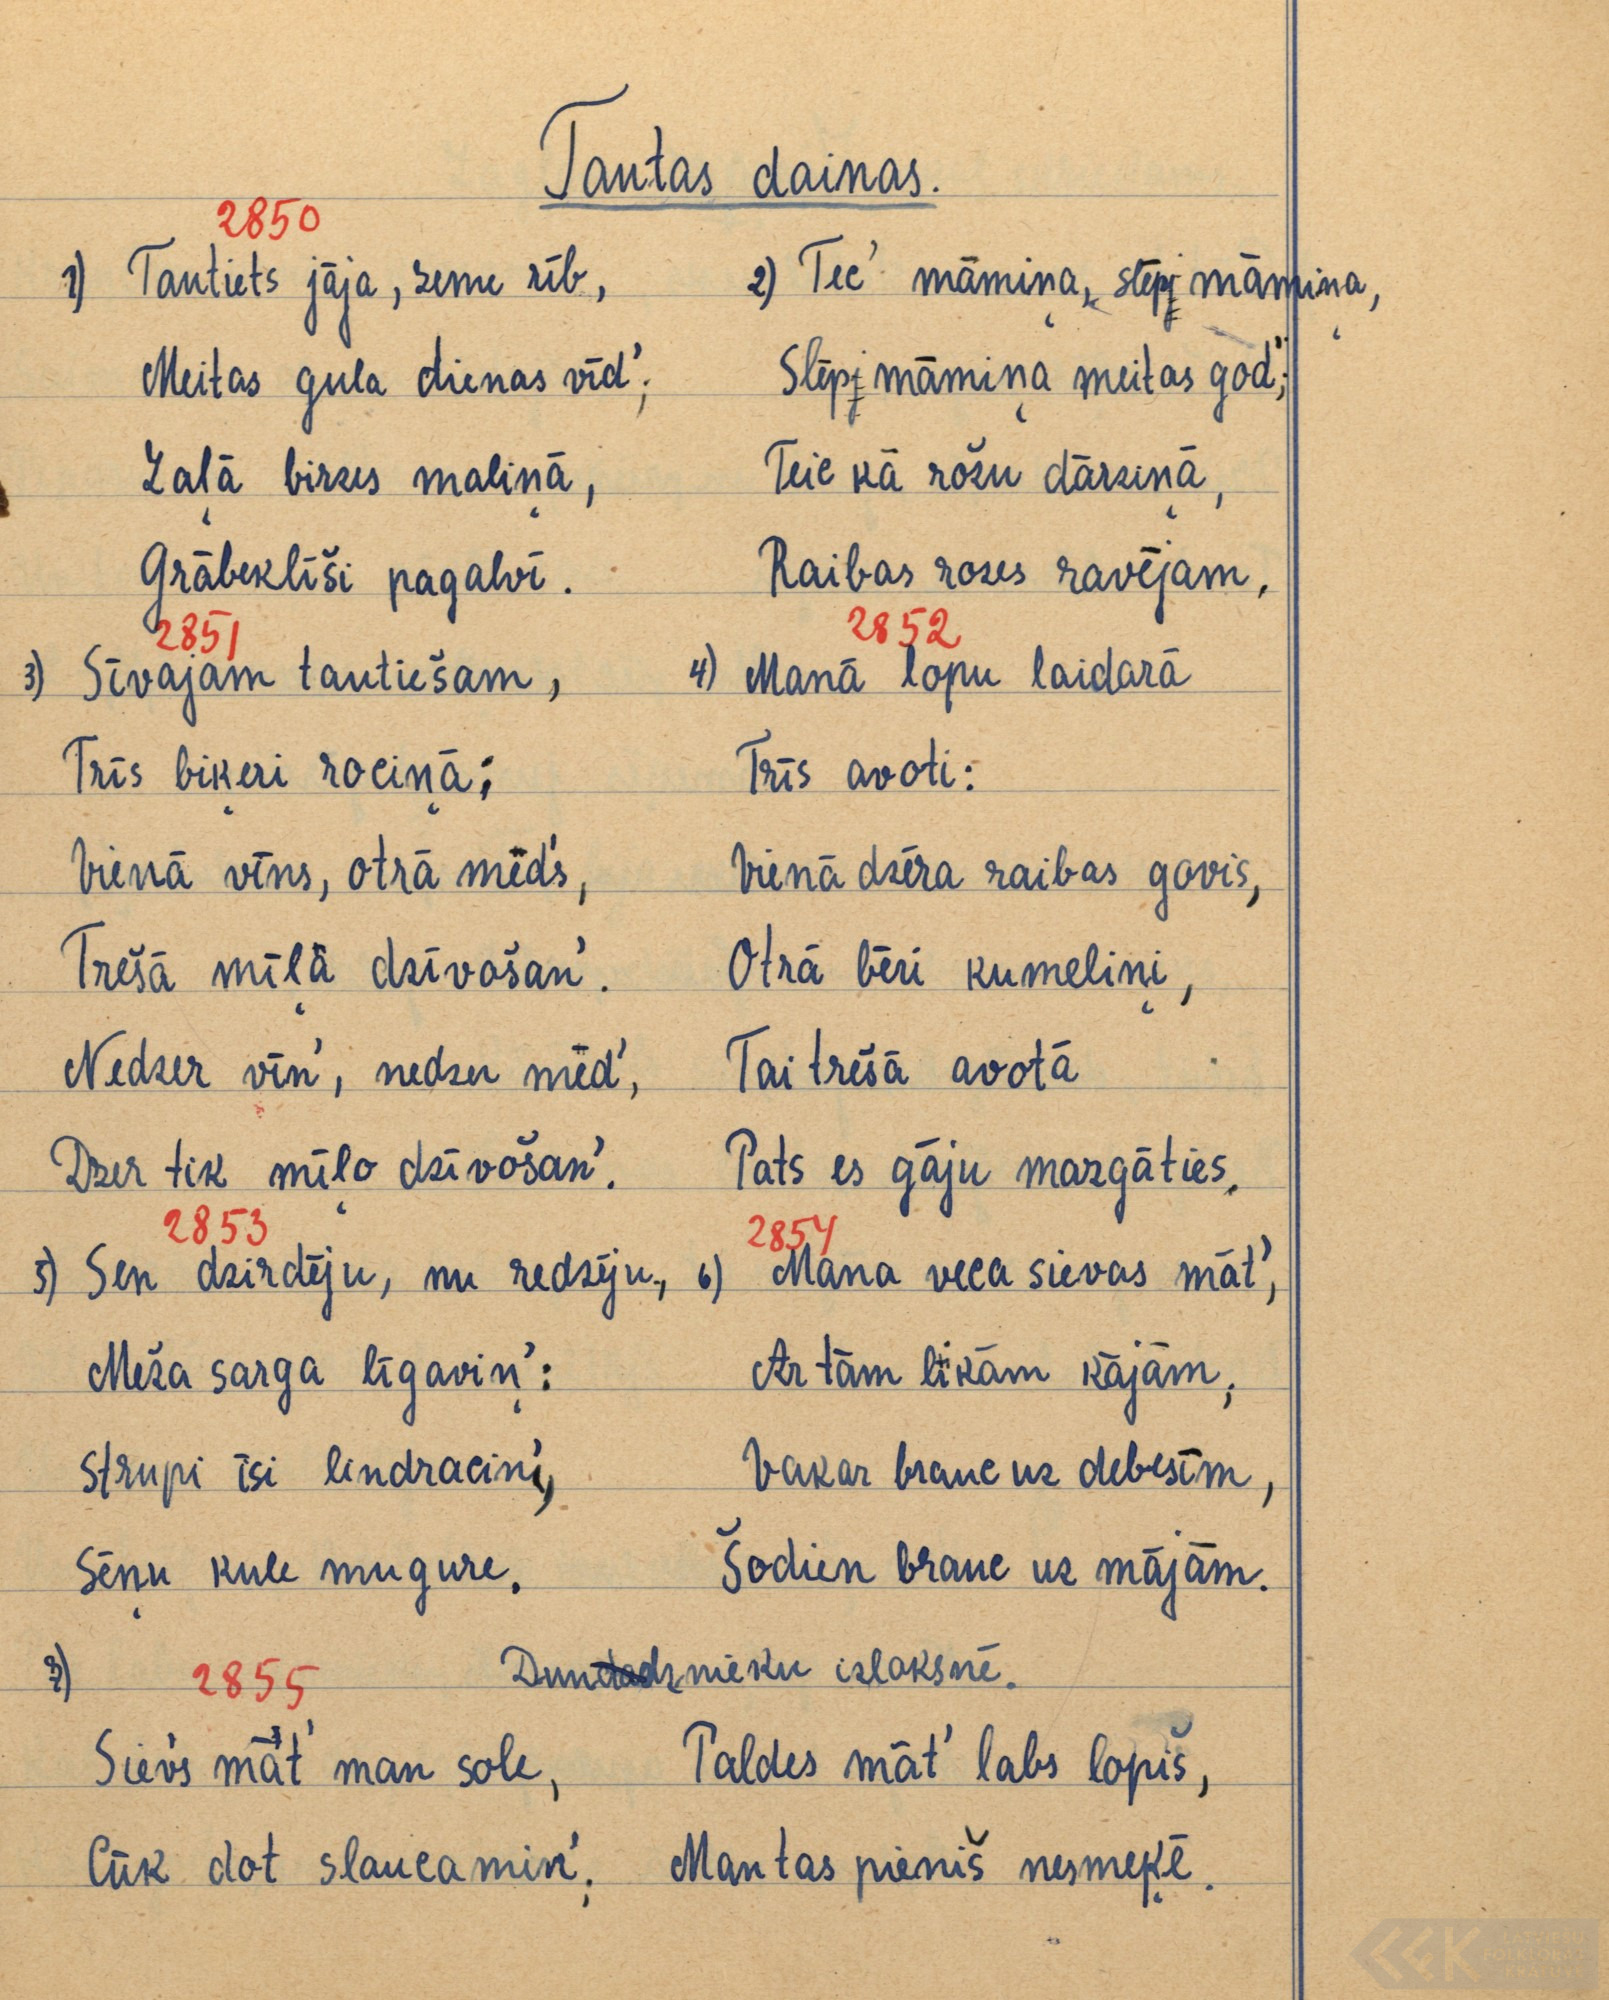 Tautas dainas.
2850
1) Tautiets jāja, zeme rīb,
Meitas gula dienas vīd';
Zaļā birzes maliņā,
Grābeklīši pagalvī.
2) Tec' māmiņa, slēpj māmiņa,
Slēpj māmiņa meitas god';
Teic kā rožu dārziņā,
Raibas rozes ravējam,
2851
3) Sīvajam tautiešam,
Trīs biķeri rociņā;
Vienā vīns, otrā mēd's,
Trešā mīļā dzīvošan'.
Nedzer vīn', nedzer mēd',
Dzer tik mīļo dzīvošan'.
2852
4) Manā lopu laidarā
Trīs avoti:
Vienā dzēra raibas govis,
Otrā bēri kumeliņi,
Tai trešā avotā
Pats es gāju mazgāties.
2853
5) Sen dzirdēju, nu redzēju,
Meža sarga līgaviņ':
Strupi īsi lindracini,
Sēņu kule mugure.
2854
6) Mana veca sievas māt',
Ar tām līkām kājām,
Vakar brauc uz debesīm,
Šodien brauc uz mājām.
7) 2855
Dundadznieku izloksnē.
Siev's māt' man sole,
Cūk dot slaucamin';
Paldes māt' labs lopiš,
Man tas pieniš nesmeķē.